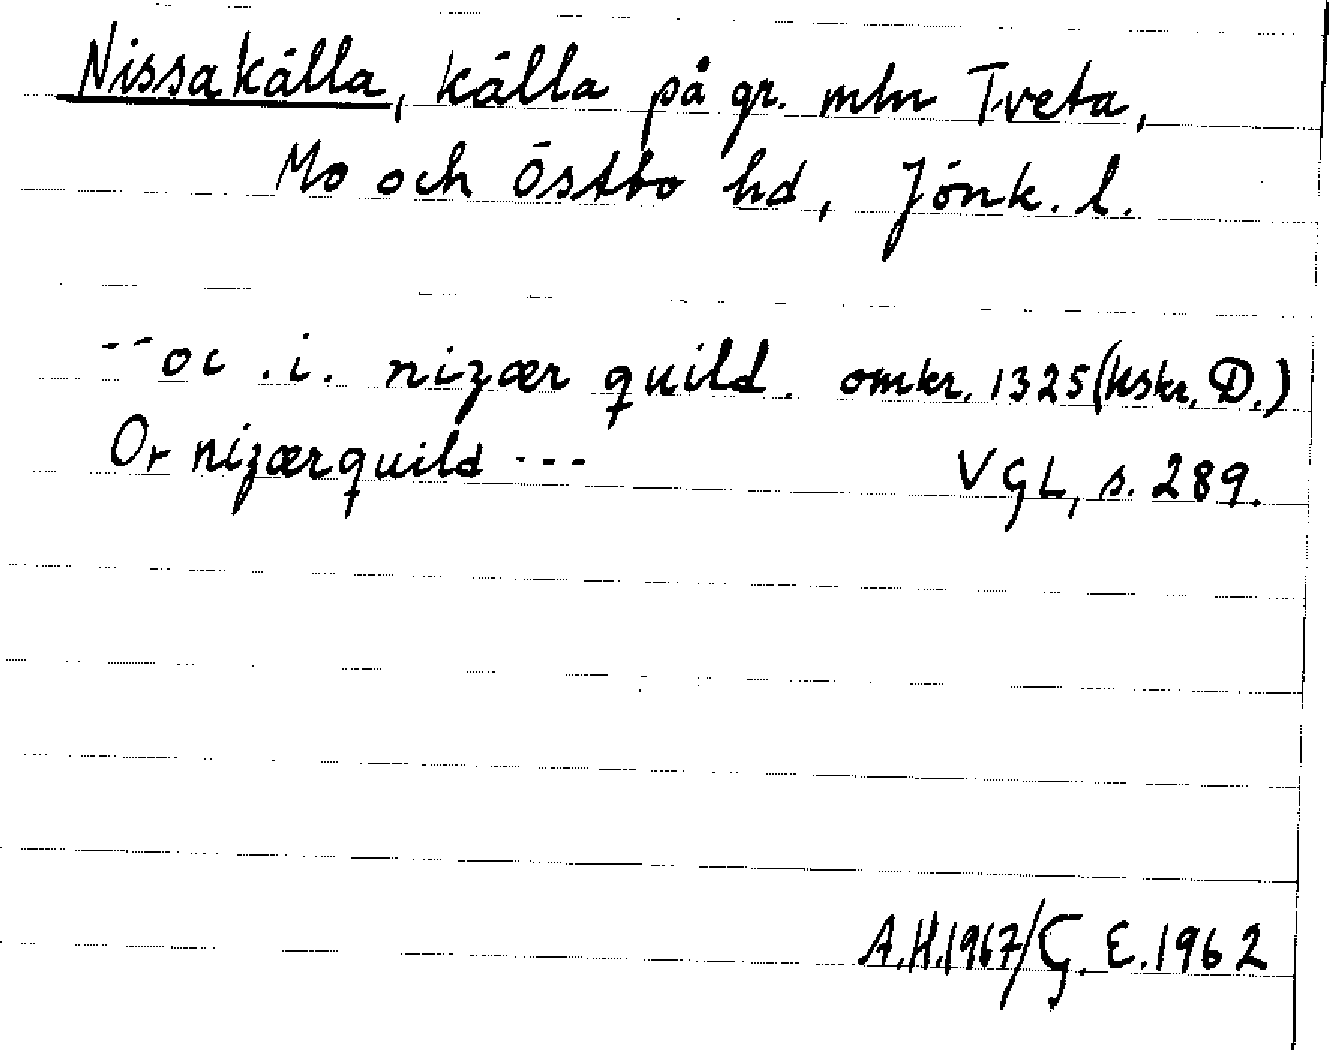 Nissakälla, källa på gr. mln Tveta,
Mo och Östbo hd, Jönk. l.
-- oc .i. nizær quild. omkr. 1325 (Hskr. D.)
Or nizærquild --- VGL, s. 289.
A.H.1967/G.E.1962